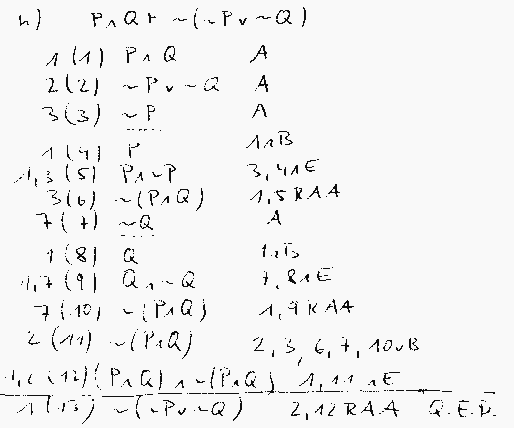 h) P∧Q ⊢ ~(~P∨~Q)
1 (1) P∧Q A
2 (2) ~P∨~Q A
3 (3) ~P A
1 (4) P 1∧B
1,3 (5) P∧~P 3,4∧E
3 (6) ~(P∧Q) 1,5 RAA
7 (7) ~Q A
1 (8) Q 1∧B
1,7 (9) Q∧~Q 7,8∧E
7 (10) ~(P∧Q) 1,9 RAA
2 (11) ~(P∧Q) 2,3,6,7,10∨B
1,2 (12) (P∧Q)∧~(P∧Q) 1,11∧E
1 (13) ~(~P∨~Q) 2,12 RAA Q.E.D.